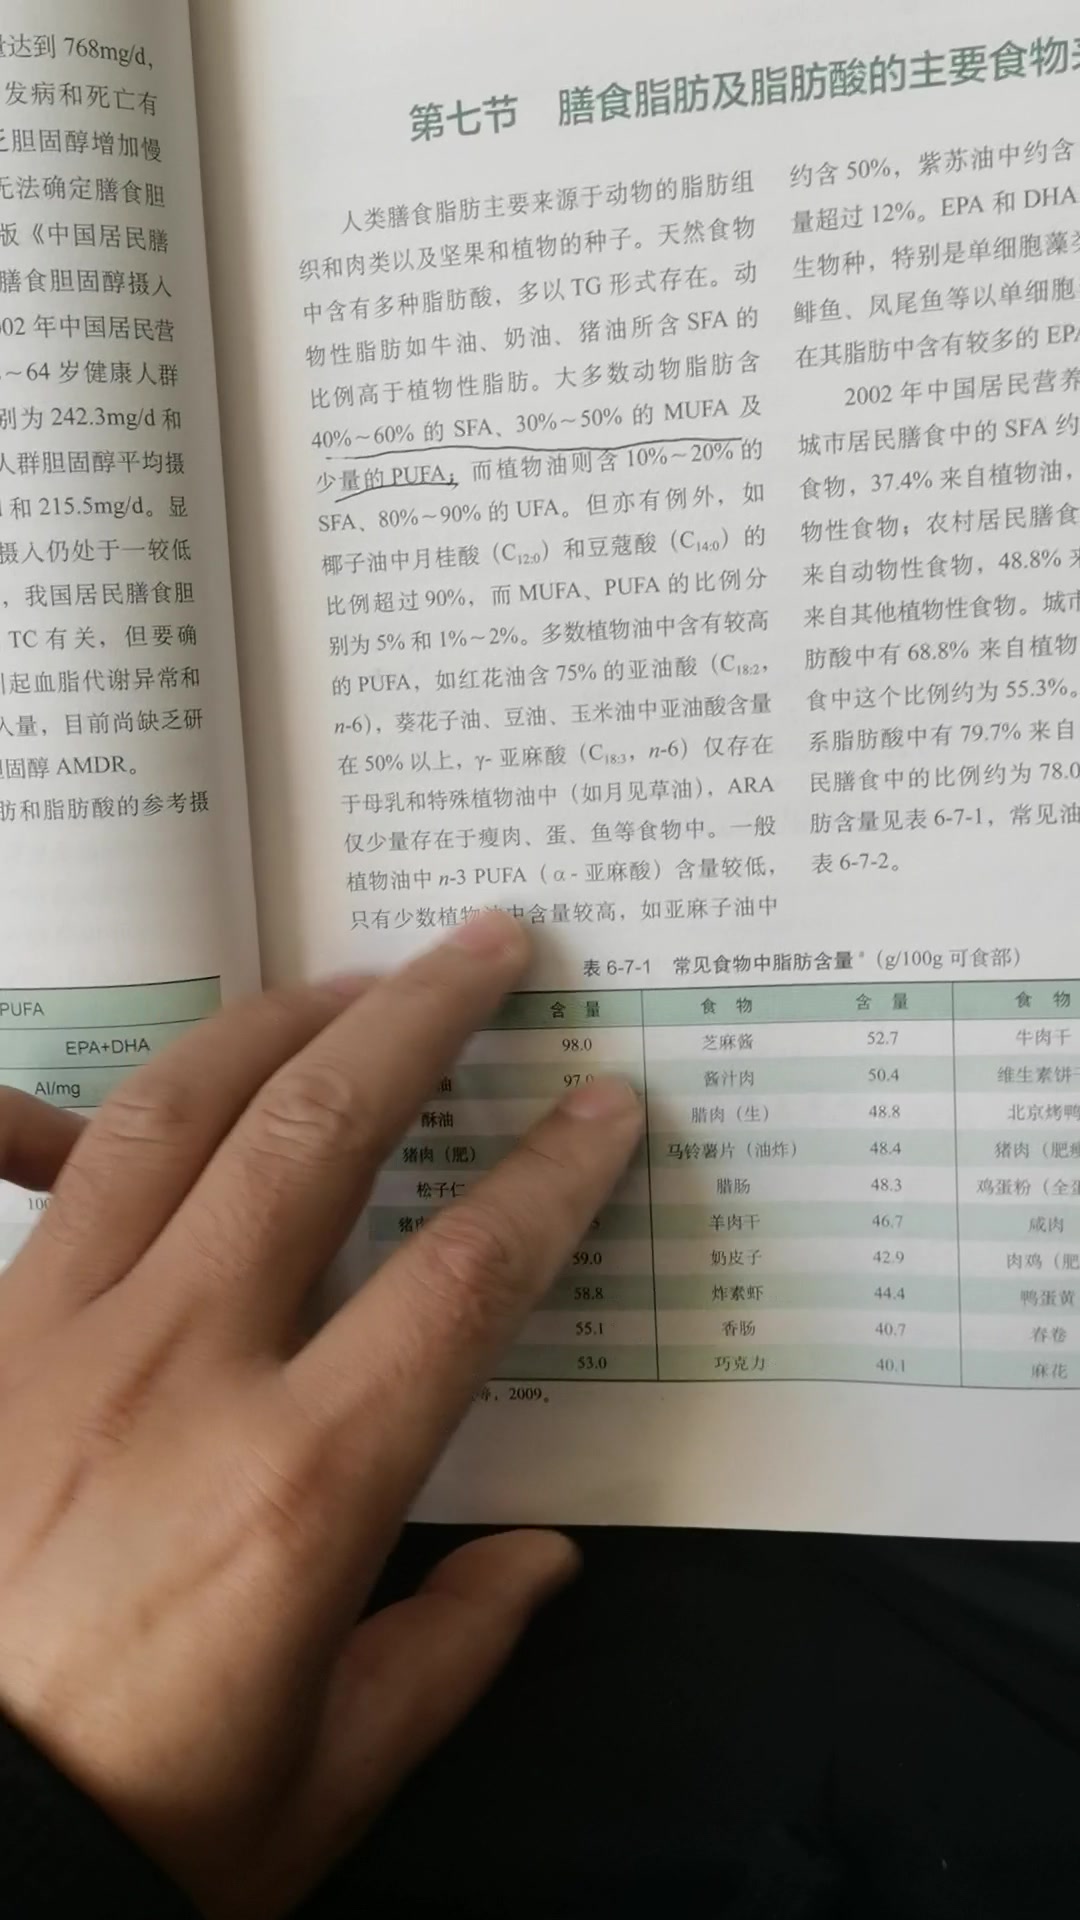 量达到 768mg/d,
发病和死亡有
乏胆固醇增加慢
无法确定膳食胆
版《中国居民膳
膳食胆固醇摄入
02 年中国居民营
~64 岁健康人群
别为 242.3mg/d 和
人群胆固醇平均摄
和 215.5mg/d。显
摄入仍处于一较低
，我国居民膳食胆
TC 有关，但要确
引起血脂代谢异常和
入量，目前尚缺乏研
胆固醇 AMDR。
肪和脂肪酸的参考摄
PUFA
EPA+DHA
AI/mg
100
第七节 膳食脂肪及脂肪酸的主要食物
人类膳食脂肪主要来源于动物的脂肪组
织和肉类以及坚果和植物的种子。天然食物
中含有多种脂肪酸，多以 TG 形式存在。动
物性脂肪如牛油、奶油、猪油所含 SFA 的
比例高于植物性脂肪。大多数动物脂肪含
40%~60% 的 SFA、30%~50% 的 MUFA 及
少量的 PUFA；而植物油则含 10%~20% 的
SFA、80%~90% 的 UFA。但亦有例外，如
椰子油中月桂酸（C12:0）和豆蔻酸（C14:0）的
比例超过 90%，而 MUFA、PUFA 的比例分
别为 5% 和 1%~2%。多数植物油中含有较高
的 PUFA，如红花油含 75% 的亚油酸（C18:2，
n-6），葵花子油、豆油、玉米油中亚油酸含量
在 50% 以上，γ- 亚麻酸（C18:3，n-6）仅存在
于母乳和特殊植物油中（如月见草油），ARA
仅少量存在于瘦肉、蛋、鱼等食物中。一般
植物油中 n-3 PUFA（α- 亚麻酸）含量较低，
只有少数植物油中含量较高，如亚麻子油中
约含 50%，紫苏油中约含
量超过 12%。EPA 和 DHA
生物种，特别是单细胞藻类
鲱鱼、凤尾鱼等以单细胞
在其脂肪中含有较多的 EPA
2002 年中国居民营养
城市居民膳食中的 SFA 约
食物，37.4% 来自植物油，
物性食物；农村居民膳食
来自动物性食物，48.8% 来
来自其他植物性食物。城市
肪酸中有 68.8% 来自植物
食中这个比例约为 55.3%。
系脂肪酸中有 79.7% 来自
民膳食中的比例约为 78.0
肪含量见表 6-7-1，常见油
表 6-7-2。
表 6-7-1 常见食物中脂肪含量*（g/100g 可食部）
含 量 食 物 含 量 食 物
98.0 芝麻酱 52.7 牛肉干
油 97.0 酱汁肉 50.4 维生素饼干
酥油 腊肉（生） 48.8 北京烤鸭
猪肉（肥） 马铃薯片（油炸） 48.4 猪肉（肥瘦
松子仁 腊肠 48.3 鸡蛋粉（全蛋
猪肉 5 羊肉干 46.7 咸肉
59.0 奶皮子 42.9 肉鸡（肥
58.8 炸素虾 44.4 鸭蛋黄
55.1 香肠 40.7 春卷
53.0 巧克力 40.1 麻花
等，2009。